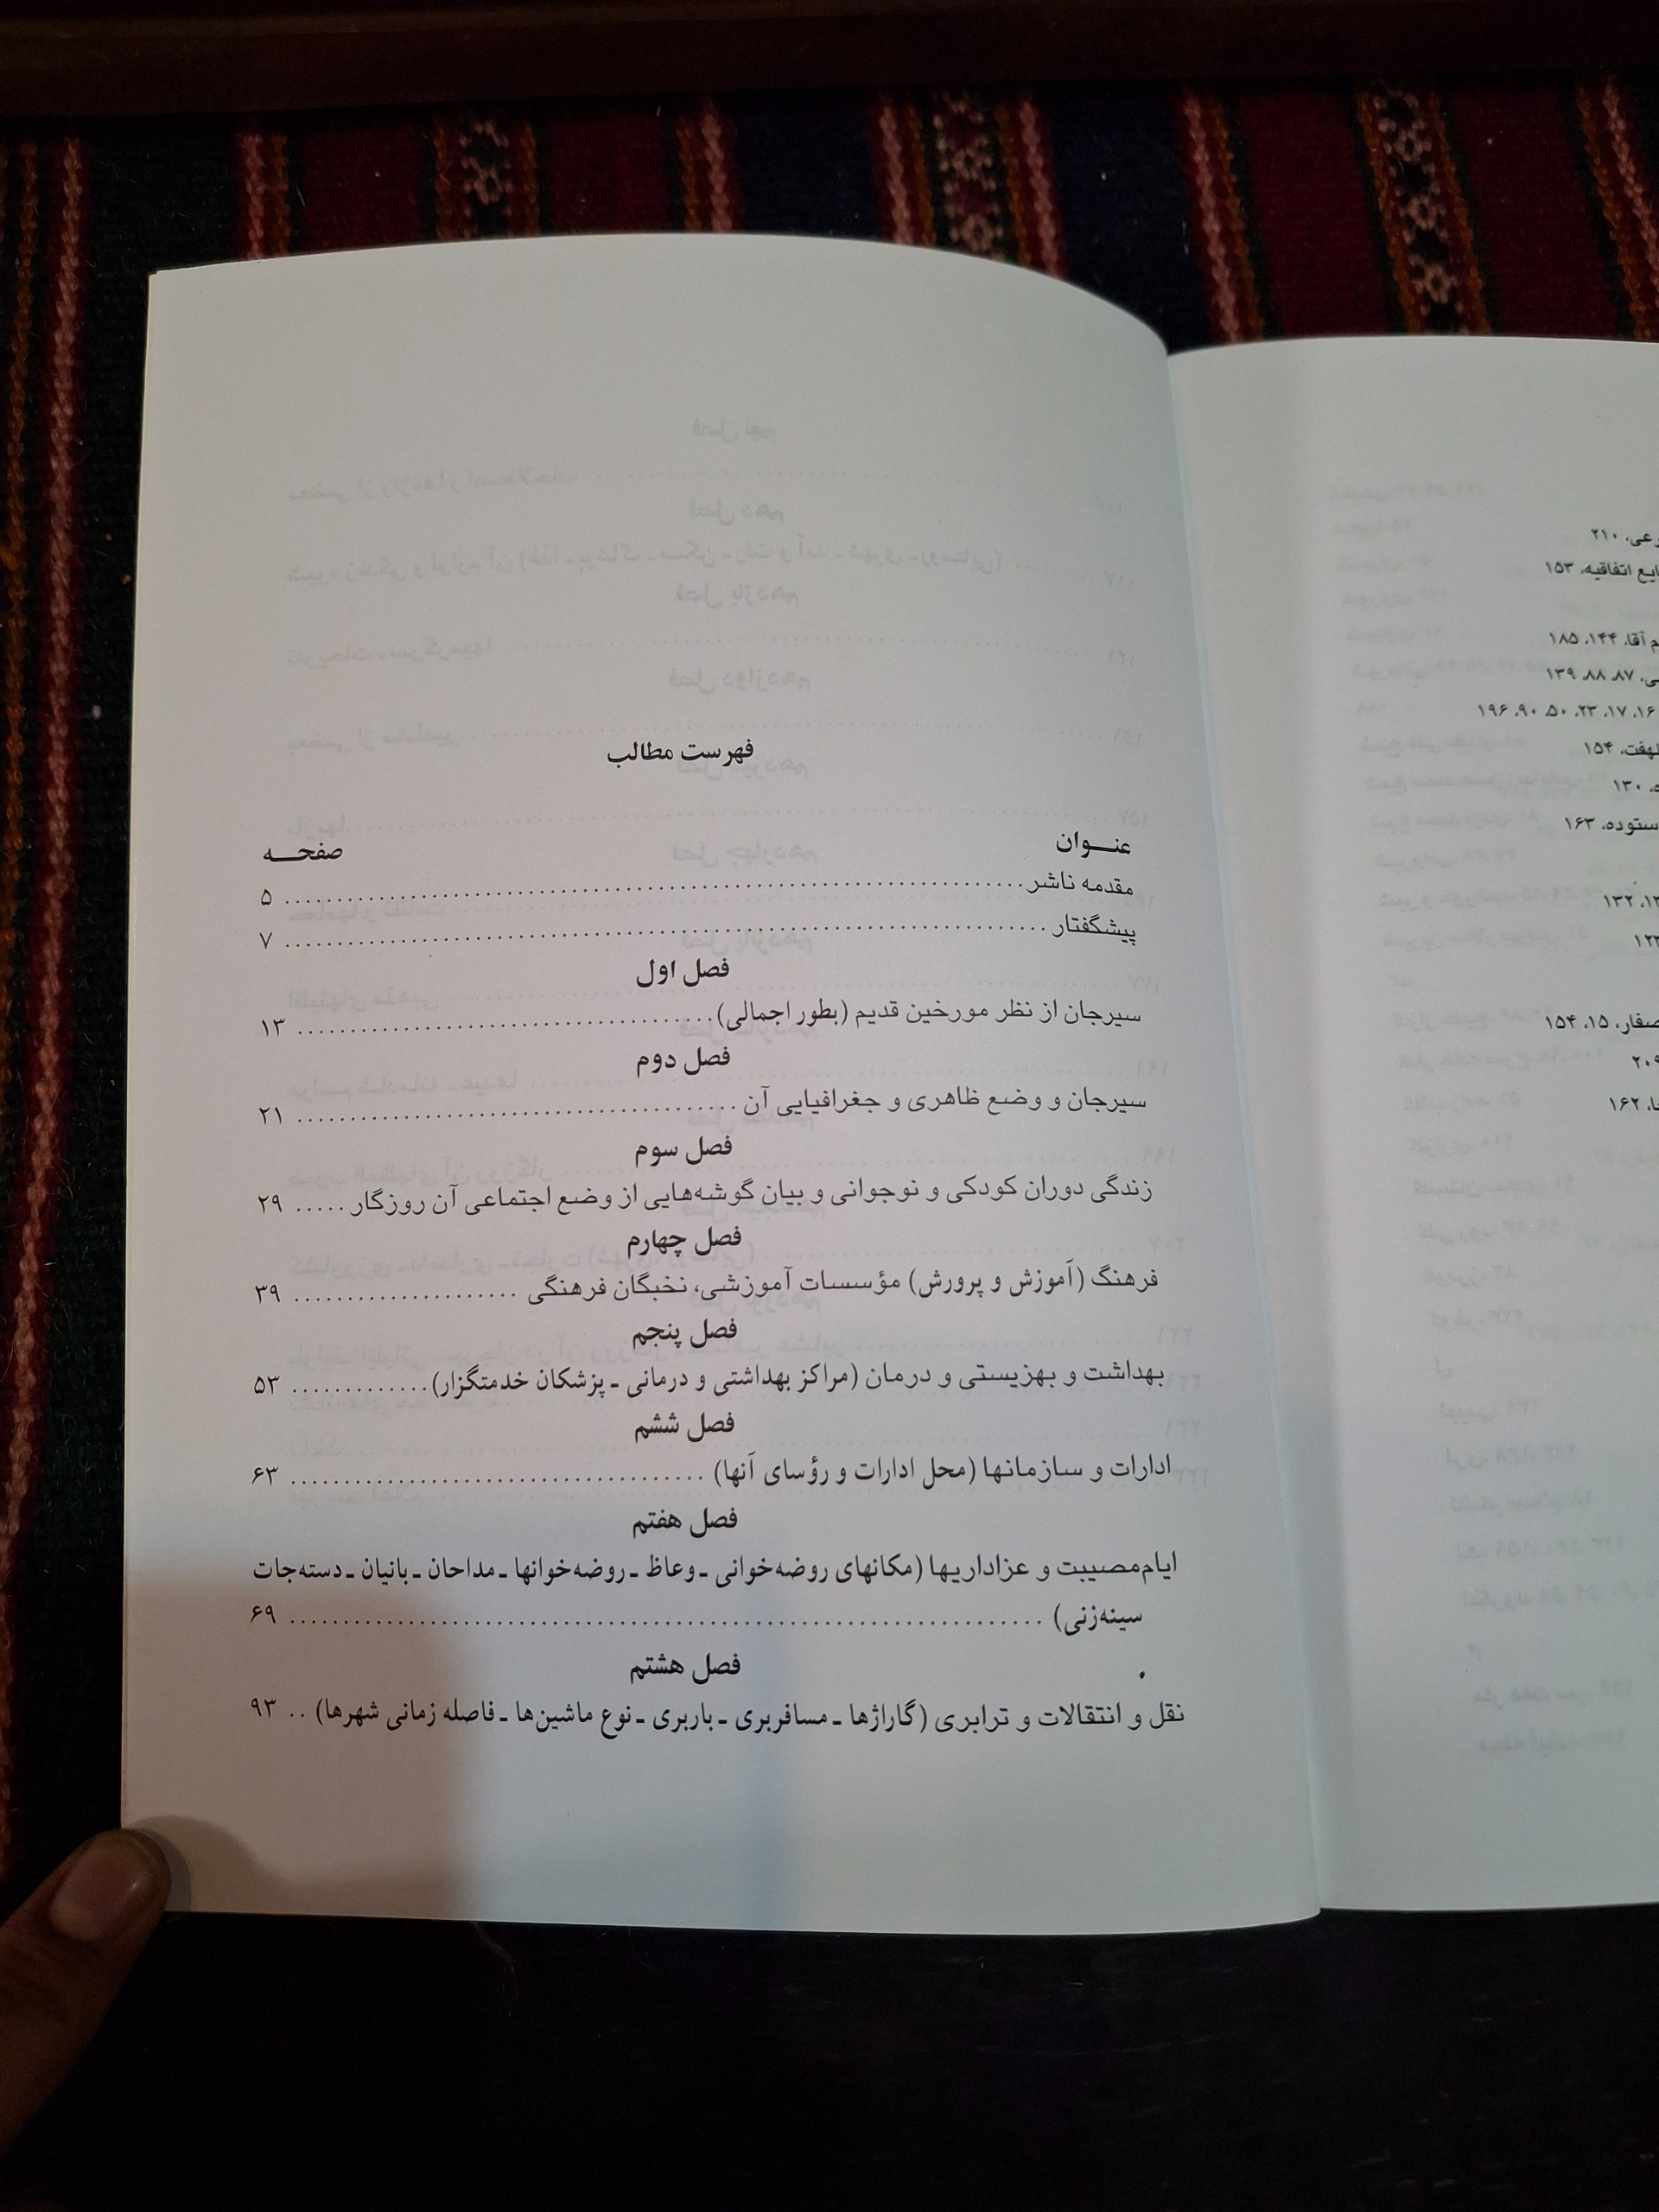 فهرست مطالب
عنـــوان صفحـــه
مقدمه ناشر ........................................ ۵
پیشگفتار ........................................ ۷
فصل اول
سیرجان از نظر مورخین قدیم (بطور اجمالی) ........................................ ۱۳
فصل دوم
سیرجان و وضع ظاهری و جغرافیایی آن ........................................ ۲۱
فصل سوم
زندگی دوران کودکی و نوجوانی و بیان گوشه‌هایی از وضع اجتماعی آن روزگار ..... ۲۹
فصل چهارم
فرهنگ (آموزش و پرورش) مؤسسات آموزشی، نخبگان فرهنگی .................... ۳۹
فصل پنجم
بهداشت و بهزیستی و درمان (مراکز بهداشتی و درمانی ـ پزشکان خدمتگزار) ............. ۵۳
فصل ششم
ادارات و سازمانها (محل ادارات و رؤسای آنها) ........................................ ۶۳
فصل هفتم
ایام‌مصیبت و عزاداریها (مکانهای روضه‌خوانی ـ وعاظ ـ روضه‌خوانها ـ مداحان ـ بانیان ـ دسته‌جات
سینه‌زنی) ........................................ ۶۹
فصل هشتم
نقل و انتقالات و ترابری (گاراژها ـ مسافربری ـ باربری ـ نوع ماشین‌ها ـ فاصله زمانی شهرها) .. ۹۳
۲۱۰
اتفاقیه، ۱۵۳
آقا، ۱۴۴، ۱۸۵
۸۷، ۸۸، ۱۳۹
۱۶، ۱۷، ۲۳، ۵۰، ۹۰، ۱۹۶
۱۵۴
۱۳۰
ستوده، ۱۶۳
۱۳۲
صفار، ۱۵، ۱۵۴
۱۶۲